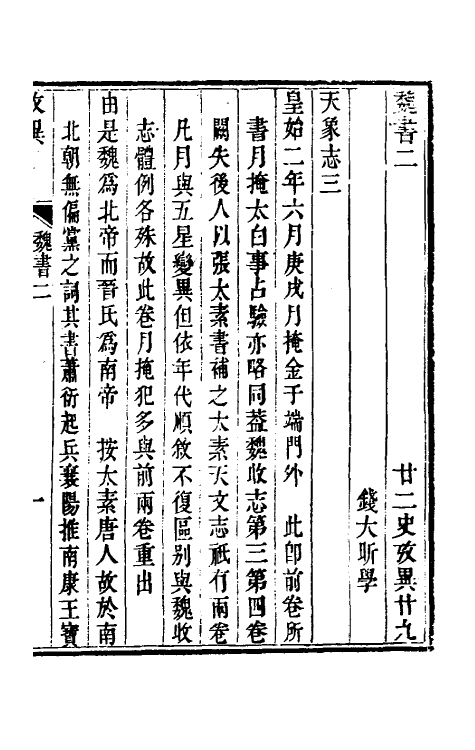 魏書二　　　　　廿二史攷異廿九
錢大昕學
天象志三
皇始二年六月庚戌月掩金于端門外　此卽前卷所
書月掩太白事占驗亦略同葢魏收志第三第四卷
闕失後人以張太素書補之太素天文志祇有兩卷
凡月與五星變異但依年代順敘不復區别與魏收
志體例各殊故此卷月掩犯多與前兩卷重出
由是魏爲北帝而晉氏爲南帝　按太素唐人故於南
北朝無偏黨之詞其書蕭衍起兵襄陽推南康王寶
攷異　魏書二　一